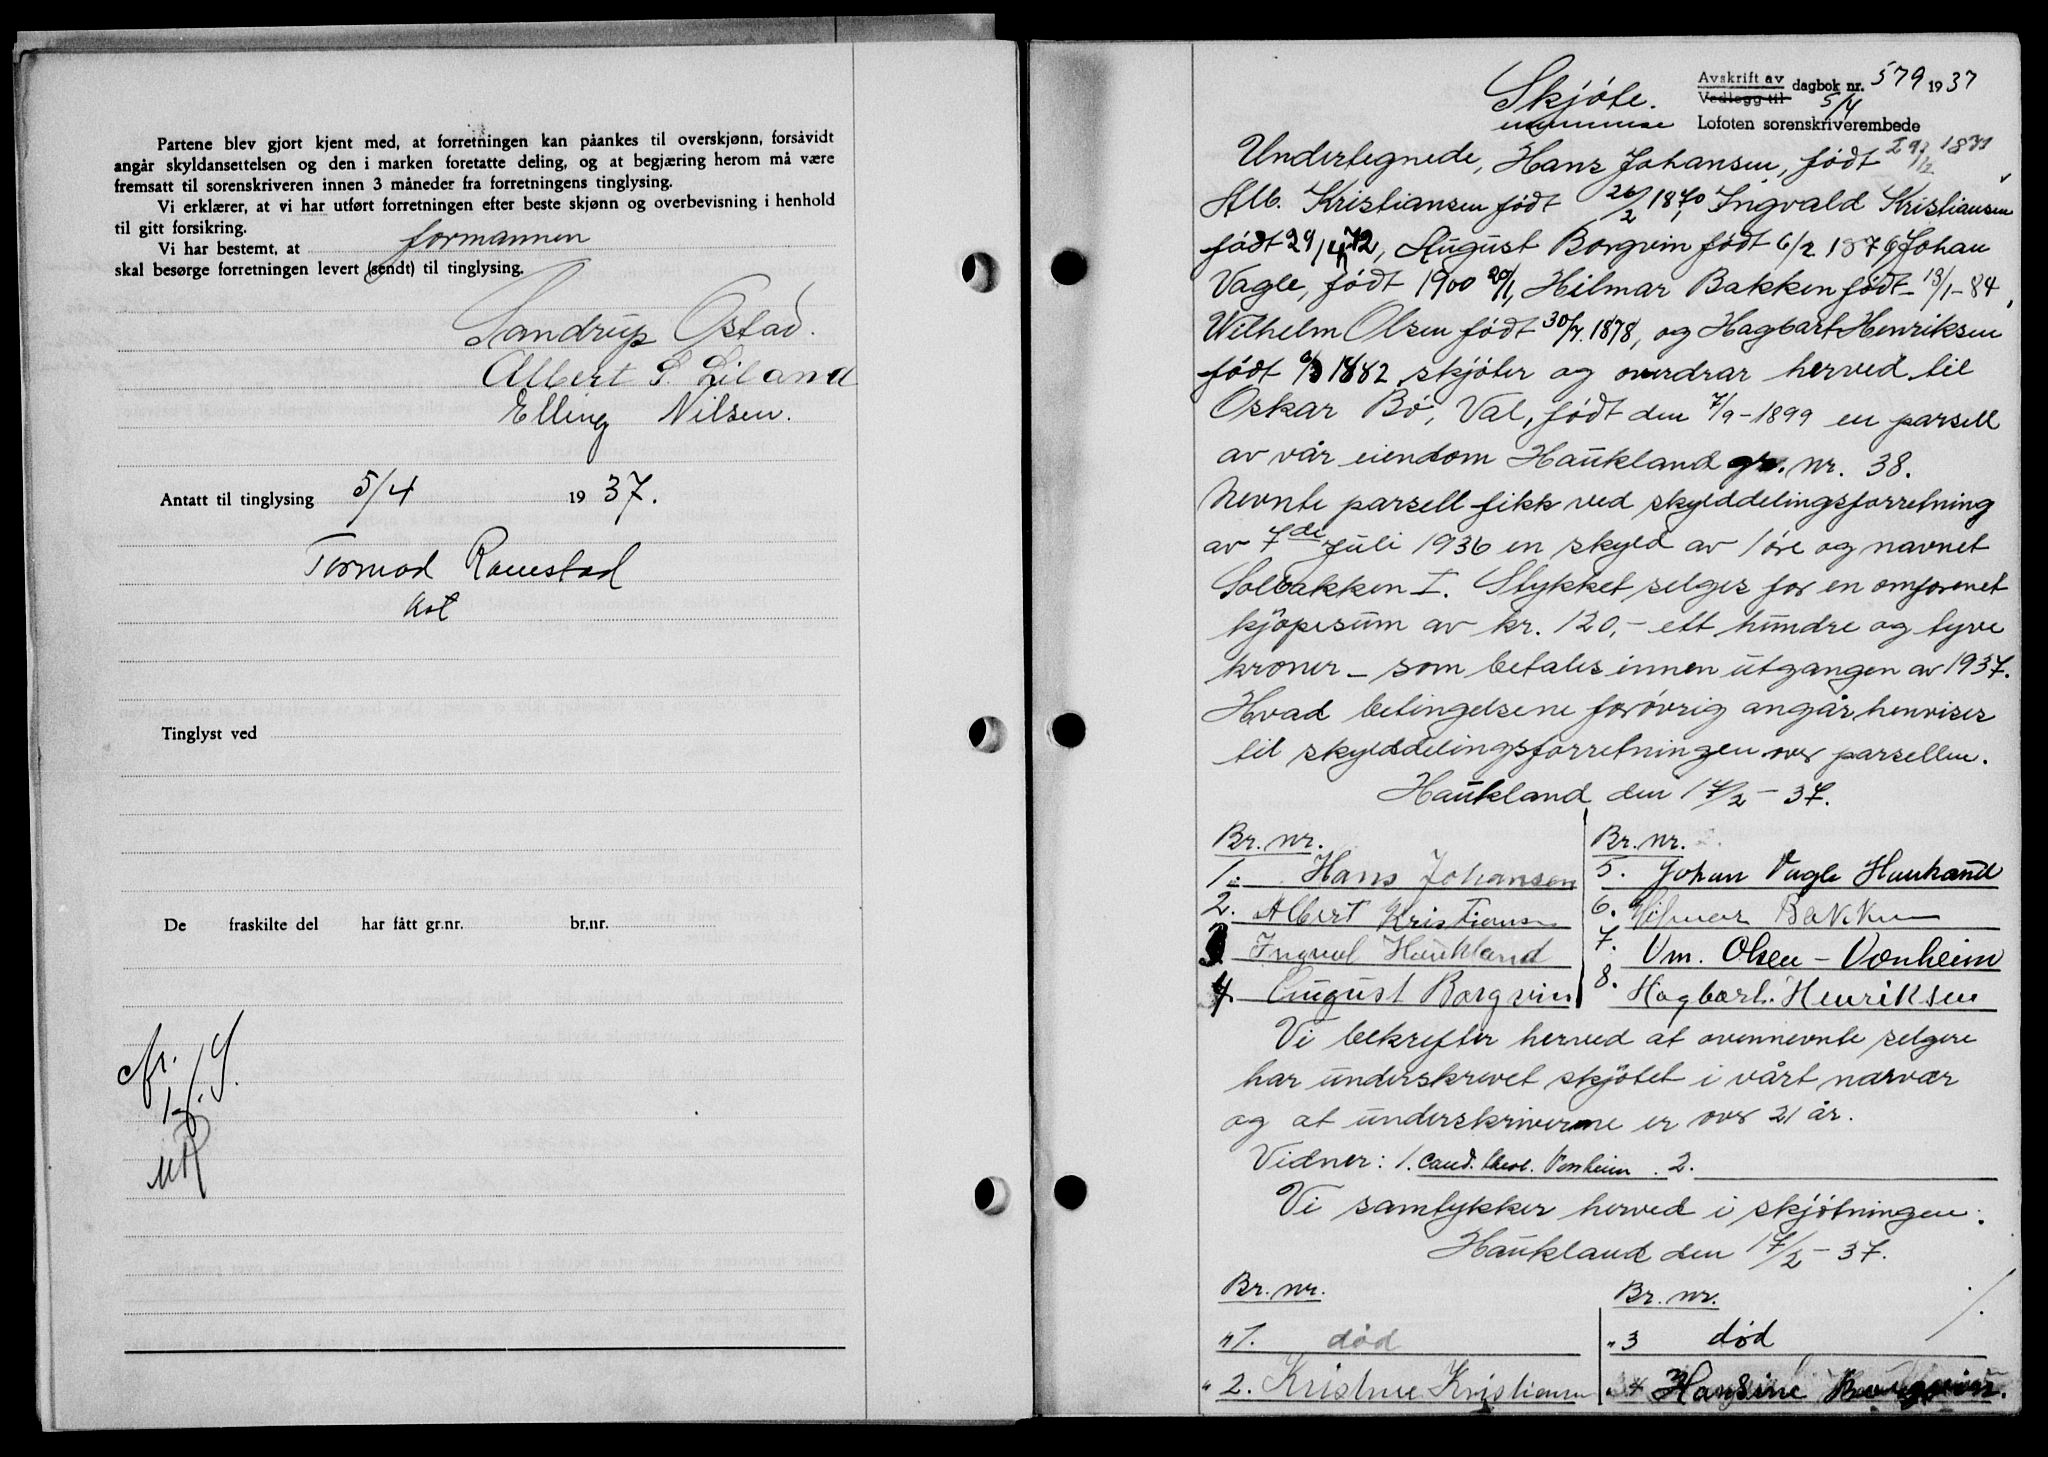 Partene blev gjort kjent med, at forretningen kan påankes til overskjønn, forsåvidt
angår skyldansettelsen og den i marken foretatte deling, og at begjæring herom må være
fremsatt til sorenskriveren innen 3 måneder fra forretningens tinglysing.
Vi erklærer, at vi har utført forretningen efter beste skjønn og overbevisning i henhold
til gitt forsikring.
Vi har bestemt, at formannen
skal besørge forretningen levert (sendt) til tinglysing.
Sandrup Ostad.
Albert S. Liland
Elling Nilsen.
Antatt til tinglysing 5/4 1937.
Tormod Ramstad
kst
Tinglyst ved
De fraskilte del har fått gr.nr. br.nr.
Skjöte.
Avskrift av
Vedlegg til
dagbok nr. 579 1937
5/4
Lofoten sorenskriverembede
Undertegnede, Hans Johansen, født
Alb. Kristiansen født 26/2 1870 Ingvald Kristiansen
født 29/4 72, August Borgvin født 6/2 1876 Johan
Vagle, født 1900 20/1, Hilmar Bakken født 13/1-84,
Wilhelm Olsen født 30/7. 1878, og Hagbart Henriksen
født 1882 skjöter og overdrar herved til
Oskar Bö, Val, født den 7/9-1899 en parsell
av vår eiendom Haukland gr. nr. 38.
Nevnte parsell fikk ved skylddelingsforretning
av 7de Juli 1936 en skyld av 1 öre og navnet
Solbakken I. Stykket selges for en omforenet
kjöpesum av kr. 120,- ett hundre og tyve
kroner - som betales innen utgangen av 1937.
Hvad betingelsene forövrig angår henvises
til skylddelingsforretningen over parsellen.
Haukland den 17/2-37.
Br. nr.
1. Hans Johansen
2. Albert Kristiansen
3 Ingval Haukland
4. August Borgvin
Br. nr.
5. Johan Vagle Haukland
6. Hilmar Bakken
7. Vm. Olsen - Vonheim
8. Hagbart Henriksen
Vi bekrefter herved at ovennevnte selgere
har underskrevet skjötet i vårt nærvær
og at underskriverne er over 21 år.
Vidner: 1. Cand. theol. Vonheim. 2.
Vi samtykker herved i skjötningen.
Haukland den 17/2-37.
Br. nr.
" 1. död
" 2. Kristine Kristiansen
Br. nr.
" 3 död
" 4 Hansine Borgvin.